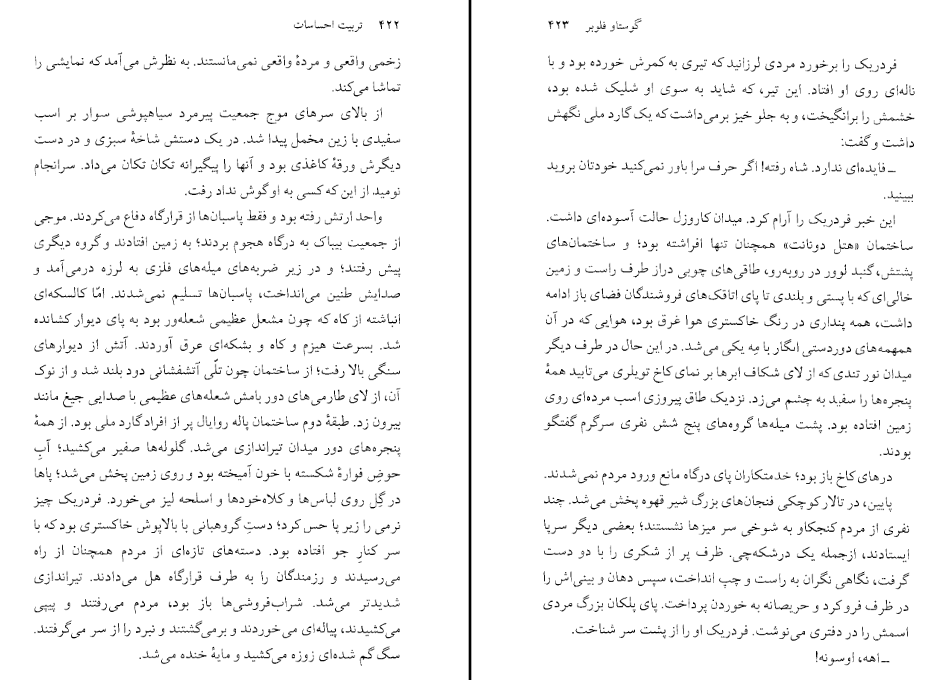 ۴۲۲ تربیت احساسات
زخمی واقعی و مردهٔ واقعی نمی‌مانستند. به نظرش می‌آمد که نمایشی را
تماشا می‌کند.
از بالای سرهای موج جمعیت پیرمرد سیاهپوشی سوار بر اسب
سفیدی با زین مخمل پیدا شد. در یک دستش شاخهٔ سبزی و در دست
دیگرش ورقهٔ کاغذی بود و آنها را پیگیرانه تکان تکان می‌داد. سرانجام
نومید از این که کسی به او گوش نداد رفت.
واحد ارتش رفته بود و فقط پاسبان‌ها از قرارگاه دفاع می‌کردند. موجی
از جمعیت بیباک به درگاه هجوم بردند؛ به زمین افتادند و گروه دیگری
پیش رفتند؛ و در زیر ضربه‌های میله‌های فلزی به لرزه درمی‌آمد و
صدایش طنین می‌انداخت، پاسبان‌ها تسلیم نمی‌شدند. امّا کالسکه‌ای
انباشته از کاه که چون مشعل عظیمی شعله‌ور بود به پای دیوار کشانده
شد. بسرعت هیزم و کاه و بشکه‌ای عرق آوردند. آتش از دیوارهای
سنگی بالا رفت؛ از ساختمان چون تلّی آتشفشانی دود بلند شد و از نوک
آن، از لای طارمی‌های دور بامش شعله‌های عظیمی با صدایی جیغ مانند
بیرون زد. طبقهٔ دوم ساختمان پاله روایال پر از افراد گارد ملی بود. از همهٔ
پنجره‌های دور میدان تیراندازی می‌شد. گلوله‌ها صفیر می‌کشید؛ آبِ
حوضِ فوارهٔ شکسته با خون آمیخته بود و روی زمین پخش می‌شد؛ پاها
در گِل روی لباس‌ها و کلاه‌خودها و اسلحه لیز می‌خورد. فردریک چیز
نرمی را زیر پا حس کرد؛ دستِ گروهبانی با بالاپوش خاکستری بود که با
سر کنارِ جو افتاده بود. دسته‌های تازه‌ای از مردم همچنان از راه
می‌رسیدند و رزمندگان را به طرف قرارگاه هل می‌دادند. تیراندازی
شدیدتر می‌شد. شراب‌فروشی‌ها باز بود، مردم می‌رفتند و پیپی
می‌کشیدند، پیاله‌ای می‌خوردند و برمی‌گشتند و نبرد را از سر می‌گرفتند.
سگ گم شده‌ای زوزه می‌کشید و مایهٔ خنده می‌شد.
گوستاو فلوبر ۴۲۳
فردریک را برخورد مردی لرزانید که تیری به کمرش خورده بود و با
ناله‌ای روی او افتاد. این تیر، که شاید به سوی او شلیک شده بود،
خشمش را برانگیخت، و به جلو خیز برمی‌داشت که یک گارد ملی نگهش
داشت و گفت:
ــ فایده‌ای ندارد. شاه رفته! اگر حرف مرا باور نمی‌کنید خودتان بروید
ببینید.
این خبر فردریک را آرام کرد. میدان کاروزل حالت آسوده‌ای داشت.
ساختمان «هتل دونانت» همچنان تنها افراشته بود؛ و ساختمان‌های
پشتش، گنبد لوور در روبه‌رو، طاقی‌های چوبی دراز طرف راست و زمین
خالی‌ای که با پستی و بلندی تا پای اتاقک‌های فروشندگان فضای باز ادامه
داشت، همه پنداری در رنگ خاکستری هوا غرق بود، هوایی که در آن
همهمه‌های دوردستی انگار با مِه یکی می‌شد. در این حال در طرف دیگر
میدان نور تندی که از لای شکاف ابرها بر نمای کاخ تویلری می‌تابید همهٔ
پنجره‌ها را سفید به چشم می‌زد. نزدیک طاق پیروزی اسب مرده‌ای روی
زمین افتاده بود. پشت میله‌ها گروه‌های پنج شش نفری سرگرم گفتگو
بودند.
درهای کاخ باز بود؛ خدمتکاران پای درگاه مانع ورود مردم نمی‌شدند.
پایین، در تالار کوچکی فنجان‌های بزرگ شیر قهوه پخش می‌شد. چند
نفری از مردم کنجکاو به شوخی سر میزها نشستند؛ بعضی دیگر سرپا
ایستادند، ازجمله یک درشکه‌چی. ظرف پر از شکری را با دو دست
گرفت، نگاهی نگران به راست و چپ انداخت، سپس دهان و بینی‌اش را
در ظرف فرو کرد و حریصانه به خوردن پرداخت. پای پلکان بزرگ مردی
اسمش را در دفتری می‌نوشت. فردریک او را از پشت سر شناخت.
ــ اهه، اوسونه!